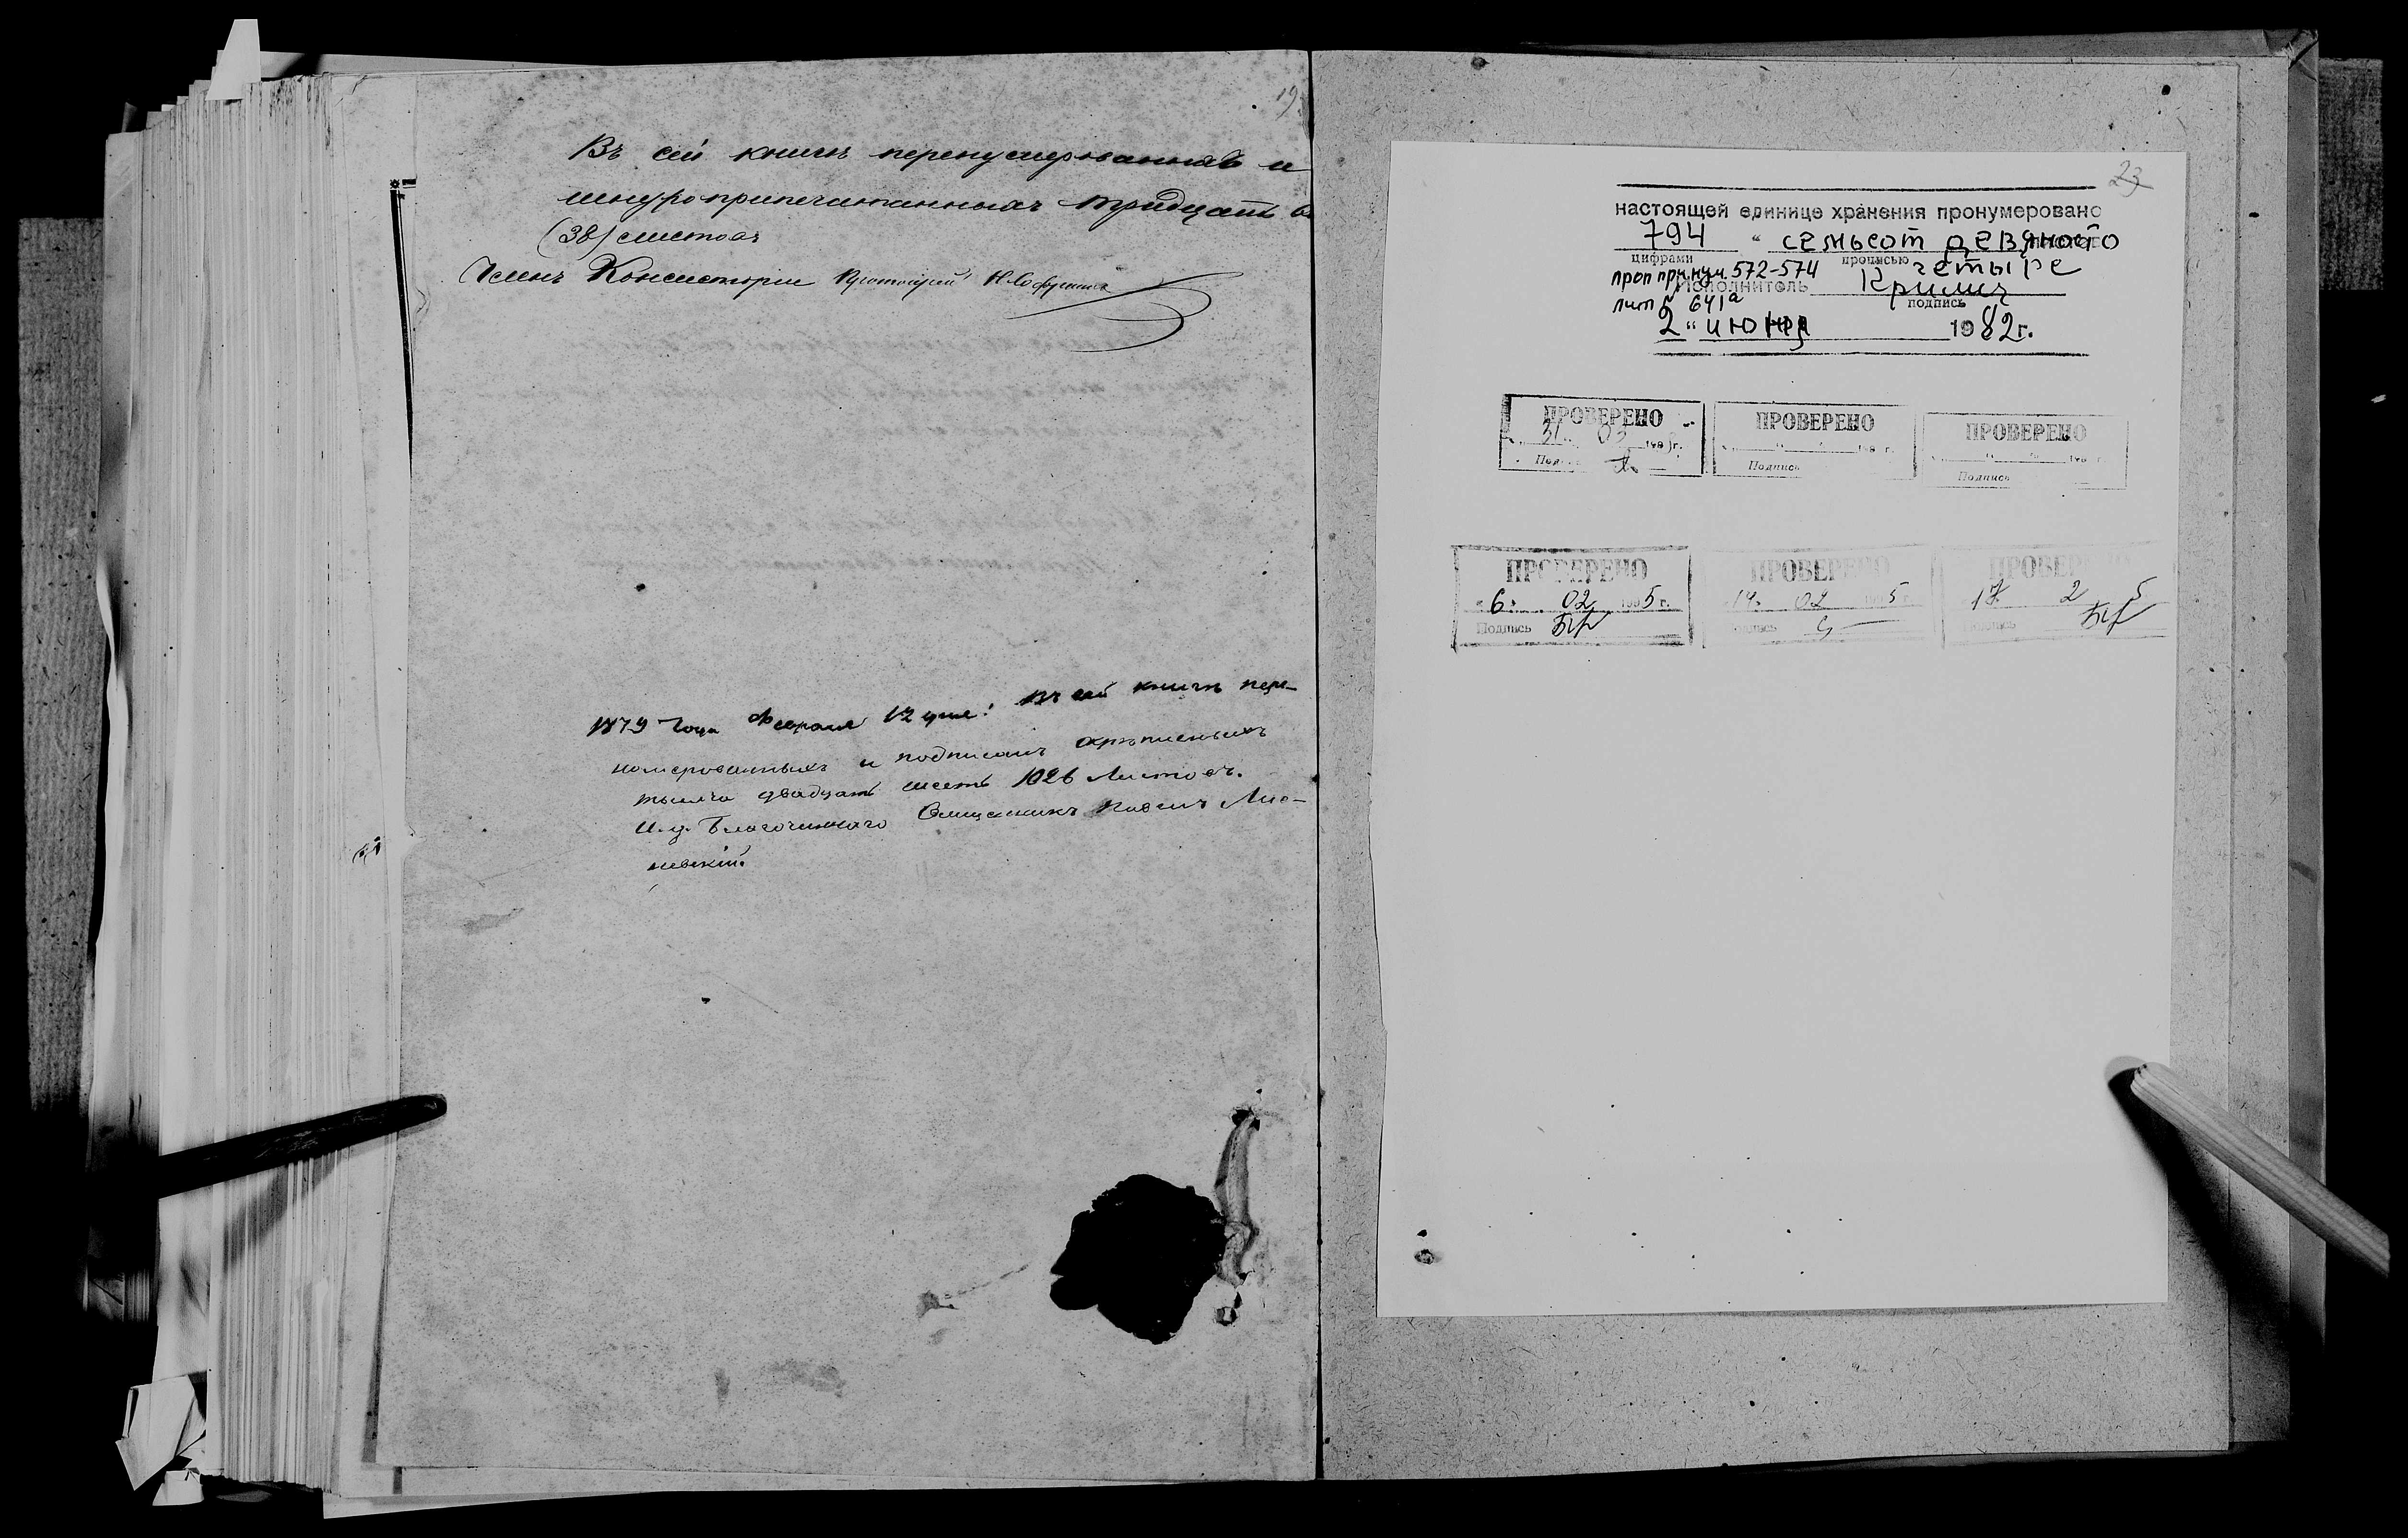 19
Въ сей книгѣ перенумерованныхъ и
шнуроприпечатанныхъ тридцать в
(38) листовъ
Членъ Консисторіи Протоіерей Н.
1879 года Февраля 12 дня: Въ сей книгѣ пере-
номерованныхъ и подписомъ скрѣпленныхъ
тысяча двадцать шесть 1026 листовъ.
И. д. Благочиннаго Священникъ Павелъ Ли-
невскій.
23
настоящей единице хранения пронумеровано
794 " семьсот девяносто
цифрами прописью четыре
проп при нум. 572-574
Исполнитель
лит № 641а подпись
2 " июня 1982 г.
ПРОВЕРЕНО ПРОВЕРЕНО ПРОВЕРЕНО
31 03 198 г. 198 г. 198 г.
Подпись Подпись Подпись
ПРОВЕРЕНО ПРОВЕРЕНО ПРОВЕРЕНО
"6" 02 1995 г. 14 02 5 17 2 5
Подпись Подпись Подпись